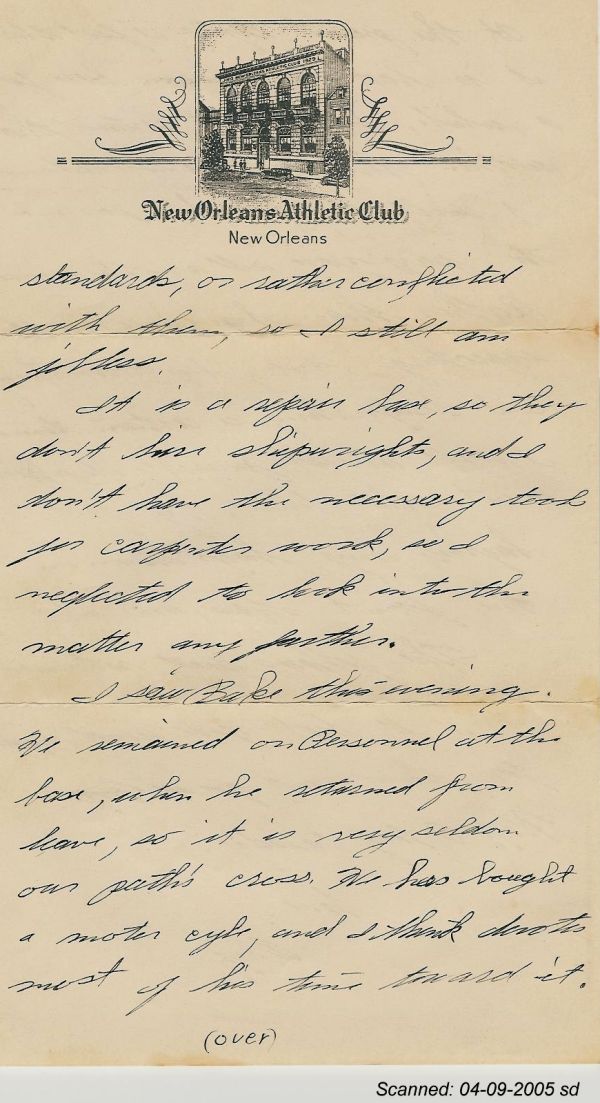 New Orleans Athletic Club
New Orleans
standards, or rather conflicted
with them, so I still am
jobless.
It is a repair base, so they
don't hire shipwrights, and I
don't have the necessary tools
for carpenter work, so I
neglected to look into the
matter any further.
I saw Bake this evening.
He remained on Personnel at the
base, when he returned from
leave, so it is very seldom
our path's cross. He has bought
a moter cyle, and I think devotes
most of his time toward it.
(over)
Scanned: 04-09-2005 sd